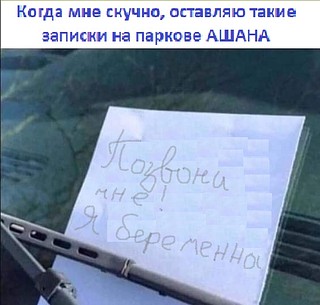 Когда мне скучно, оставляю такие
записки на паркове АШАНА
Позвони
мне!
Я беременна